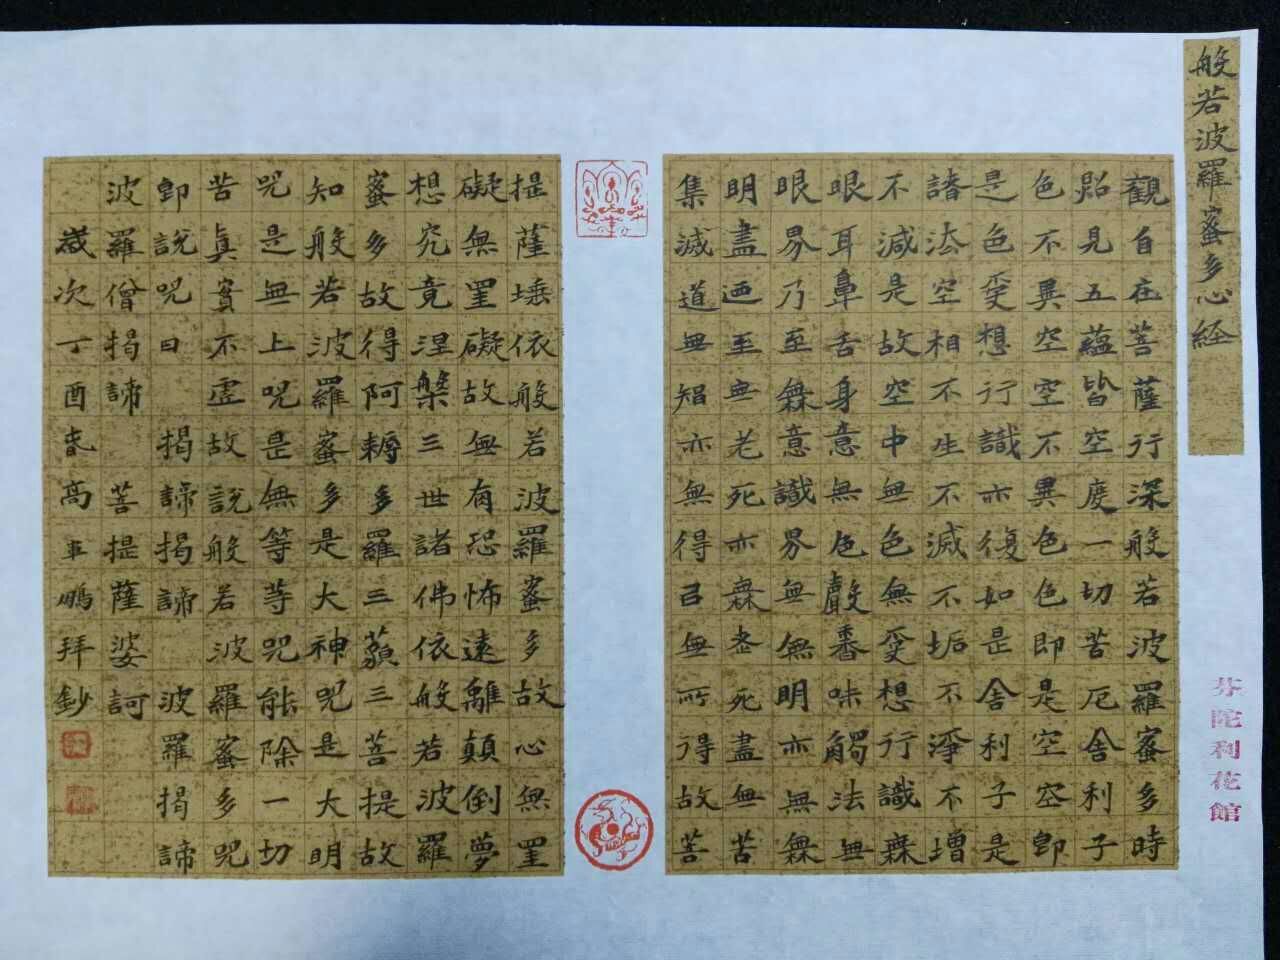 般若波羅蜜多心経
觀自在菩薩行深般若波羅蜜多時
照見五蘊皆空度一切苦厄舍利子
色不異空空不異色色即是空空即
是色受想行識亦復如是舍利子是
諸法空相不生不滅不垢不淨不增
不減是故空中無色無受想行識無
眼耳鼻舌身意無色聲香味觸法無
眼界乃至無意識界無無明亦無無
明盡迺至無老死亦無老死盡無苦
集滅道無智亦無得以無所得故菩
提薩埵依般若波羅蜜多故心無罣
礙無罣礙故無有恐怖遠離顛倒夢
想究竟涅槃三世諸佛依般若波羅
蜜多故得阿耨多羅三藐三菩提故
知般若波羅蜜多是大神咒是大明
咒是無上咒是無等等咒能除一切
苦眞實不虛故説般若波羅蜜多咒
即説咒曰 揭諦揭諦 波羅揭諦
波羅僧揭諦 菩提薩婆訶
歲次丁酉春高鵬拜鈔
芬陀利花館